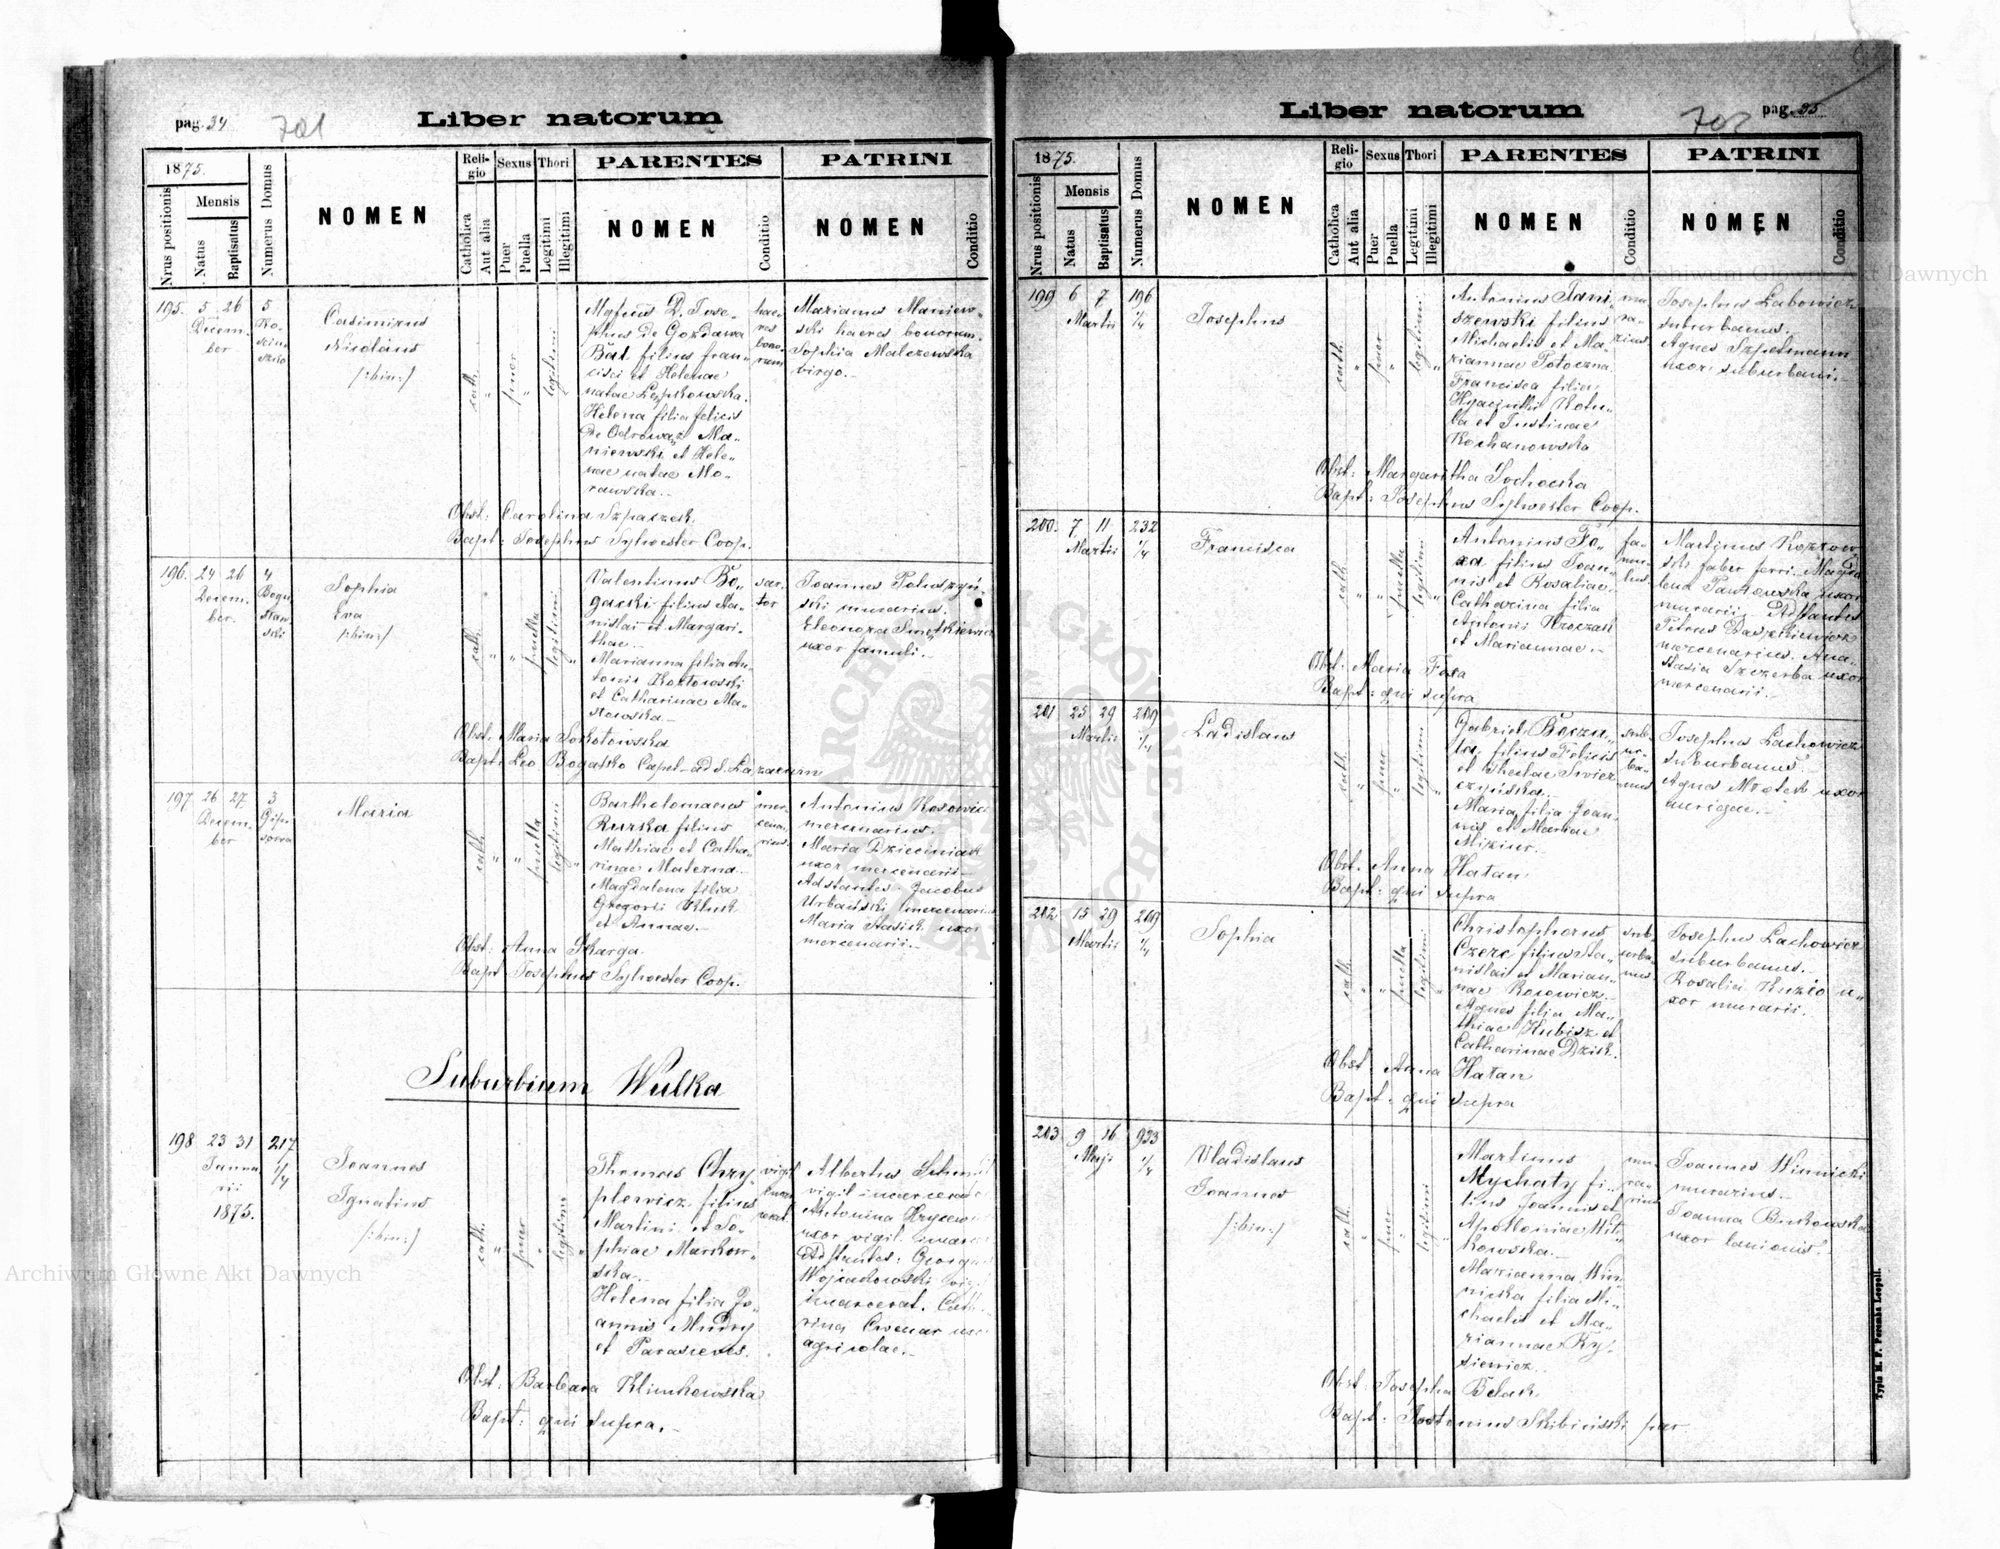 pag. 34
701
Liber natorum
1875.
Nrus positionis
Mensis
Natus
Baptisatus
Numerus Domus
NOMEN
Religio
Catholica
Aut alia
Sexus
Puer
Puella
Thori
Legitimi
Illegitimi
PARENTES
NOMEN
Conditio
PATRINI
NOMEN
Conditio
195. 5 26
Decem-
ber
5
Ko-
sciu-
szko
Casimirus
Nicolaus
/:bin:/
cath.
"
puer
"
legitimi
Mgficus D. Jose-
phus de Gozdawa
Bal filius fran-
cisci et Helenae
natae Lepkowska.
Helena filia felicis
De Odrowąż Ma-
niewski et Hele-
nae natae Mo-
rawska.
hae-
res
bono-
rum
Marianus Maniew-
ski haeres bonorum.
Sophia Malczewska
virgo.
Obst: Carolina Szpaczek
Bapt: Josephus Sylwester Coop.
196. 24 26
Decem-
ber.
4
Bogu
sław
ski
Sophia
Eva
/:bin:/
cath.
"
"
puella
legitimi
"
Valentinus Bo-
gacki filius Sta-
nislai et Margari-
thae.
Marianna filia An-
tonii Kozłowski
et Catharinae Ma-
słowska.
sar-
tor
Joannes
ski murarius.
Eleonora Smętkiewicz
uxor famuli.
Obst: Maria Sokołowska
Bapt: Leo Bogatko Capel. ad S. Lazarum
197. 26 27
Decem-
ber
3
Maria
cath.
"
"
puella
legitimi
"
Bartholomaeus
Rurska filius
Mathiae et Catha-
rinae Materna.
Magdalena filia
Gregorii Kluk
et Annae.
mer-
cena-
rius.
Antonius Kosowicz
mercenarius.
Maria Dzieciniak
uxor mercenarii.
Adstantes: Jacobus
Urbański mercenarius
Maria Stasiek uxor
mercenarii.
Obst: Anna Skarga.
Bapt: Josephus Sylwester Coop.
Suburbium Wulka
198 23 31
Janua
rii
1875.
217
1/4
Joannes
Ignatius
/:bin:/
cath.
"
puer
"
legitimi
"
Thomas Chry-
plewicz filius
Martini et So-
phiae Markow-
ska.
Helena filia Jo-
annis Mudry
et Parascevis.
vigil
incar
cerat.
Albertus
vigil incarcerat.
Antonina Hrycewicz
uxor vigil. incarc.
Adstantes: Georgius
Wojciechowski vigil
incarcerat. Catha-
rina uxor
agricolae.
Obst: Barbara Klimkowska
Bapt: qui supra.
pag. 35
702
Liber natorum
1875.
Nrus positionis
Mensis
Natus
Baptisatus
Numerus Domus
NOMEN
Religio
Catholica
Aut alia
Sexus
Puer
Puella
Thori
Legitimi
Illegitimi
PARENTES
NOMEN
Conditio
PATRINI
NOMEN
Conditio
199 6 7
Martii
196
1/4
Josephus
cath.
"
puer
"
legitimi
"
Antonius Jani-
szewski filius
Michaelis et Ma-
riannae Potoczna.
Francisca filia
Hyacinthi Kotu-
la et Justinae
Kochanowska
mu-
ra-
rius
Josephus Labowicz
suburbanus.
Agnes Szpetmann
uxor suburbani.
Obst: Margaritha Sochacka
Bapt: Josephus Sylwester Coop.
200. 7 11
Martii
232
1/4
Francisca
cath.
"
"
puella
legitimi
"
Antonius Fo-
xa filius Joan-
nis et Rosaliae.
Catharina filia
Antonii Kroczak
et Mariannae.
fa-
mu-
lus
Martinus Kozłow
ski faber ferri. Magda
lena Pawłowska uxor
murarii. Adstantes
Petrus Daszkiewicz
mercenarius. Ana-
stasia Szczerba uxor
mercenarii.
Obst: Maria Foxa
Bapt: qui supra
201 25 29
Martii
209
1/4
Ladislaus
cath.
"
puer
"
legitimi
"
Gabriel Baczu-
la filius Felicis
et Theclae Swier
czyńska.
Maria filia Joan-
nis et Mariae
Miziur.
sub-
ur-
ba-
nus
Josephus Lachowicz
suburbanus.
Agnes Mrotek uxor
aurigae.
Obst: Anna Hatan
Bapt: qui supra
202 15 29
Martii
209
1/4
Sophia
cath.
"
"
puella
legitimi
"
Christophorus
Czerc filius Sta-
nislai et Marian-
nae Kosowicz.
Agnes filia Ma-
thiae Kubisz et
Catharinae Dzik.
sub-
urba-
nus
Josephus Lachowicz
suburbanus.
Rosalia Kuzio u-
xor murarii.
Obst: Anna Hatan
Bapt: qui supra
203 9 16
Maji
933
1/4
Vladislaus
Joannes
/:bin:/
cath.
"
puer
"
legitimi
"
Martinus
Mychaty fi-
lius Joannis et
Apolloniae Wit-
kowska.
Marianna Win-
nicka filia Mi-
chaelis et Ma-
riannae Ky-
siewicz.
mu-
ra-
rius
Joannes Winnicki
murarius.
Joanna Bukowska
uxor lanionis.
Obst: Josepha Belak
Bapt: Antonius Skibiński par.
Typis H. F. Poremba Leopoli.
Archiwum Główne Akt Dawnych
Archiwum Główne Akt Dawnych
ARCHIWUM GŁÓWNE AKT DAWNYCH